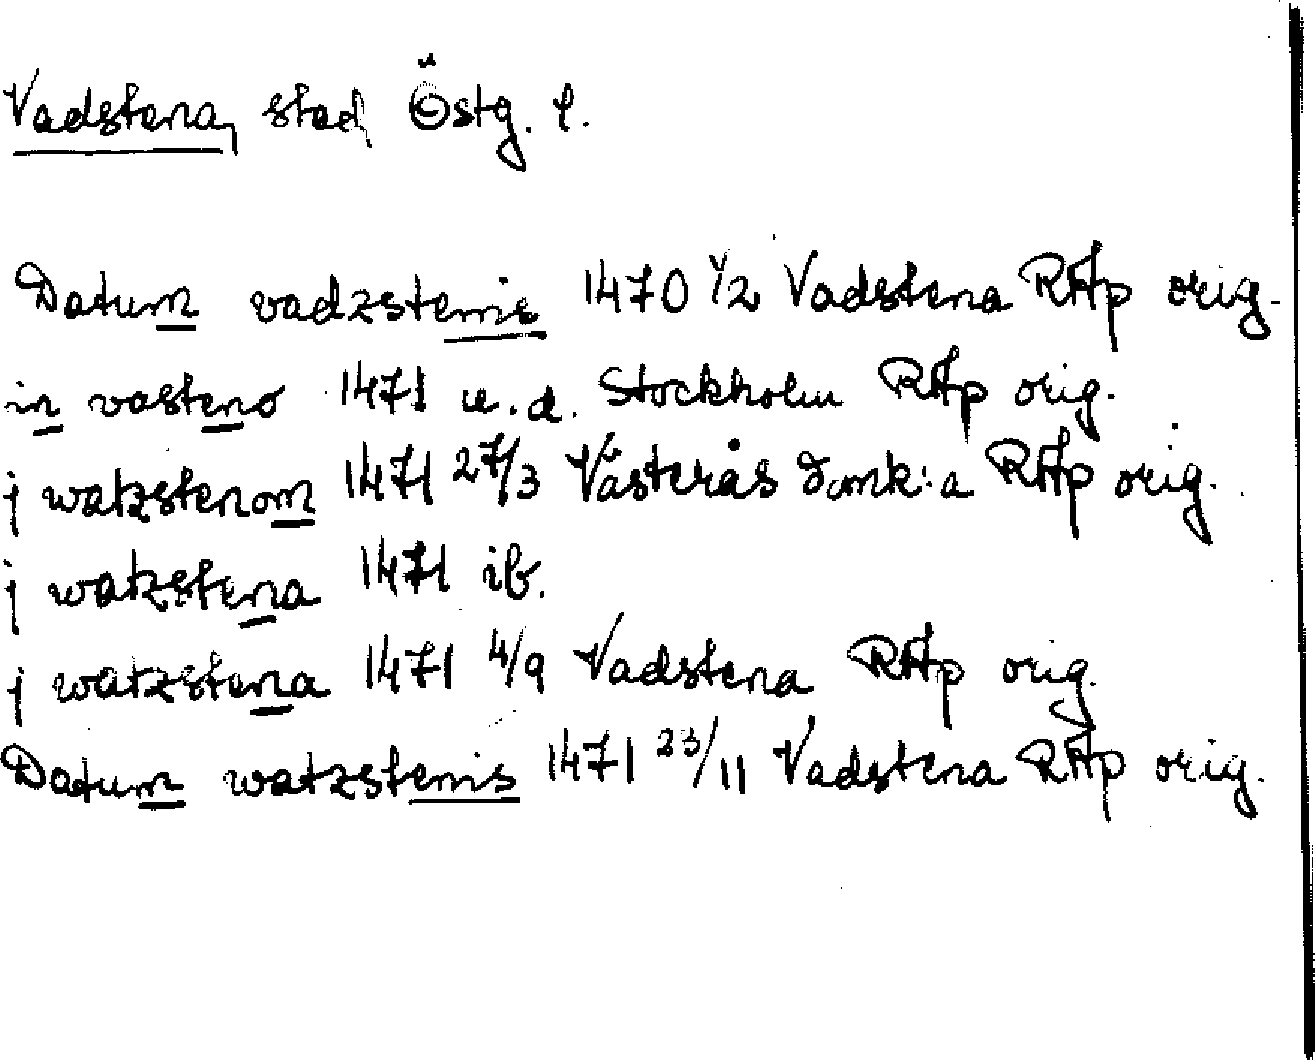 Vadstena, stad Östg. l.
Datum vadzstenis 1470 1/2 Vadstena RAp orig.
in vasteno 1471 u.d. Stockholm RAp orig.
j watzstenom 1471 27/3 Västerås domk:a RAp orig.
j watzstena 1471 ib.
j watzstena 1471 4/9 Vadstena RAp orig.
Datum watzstenis 1471 23/11 Vadstena RAp orig.